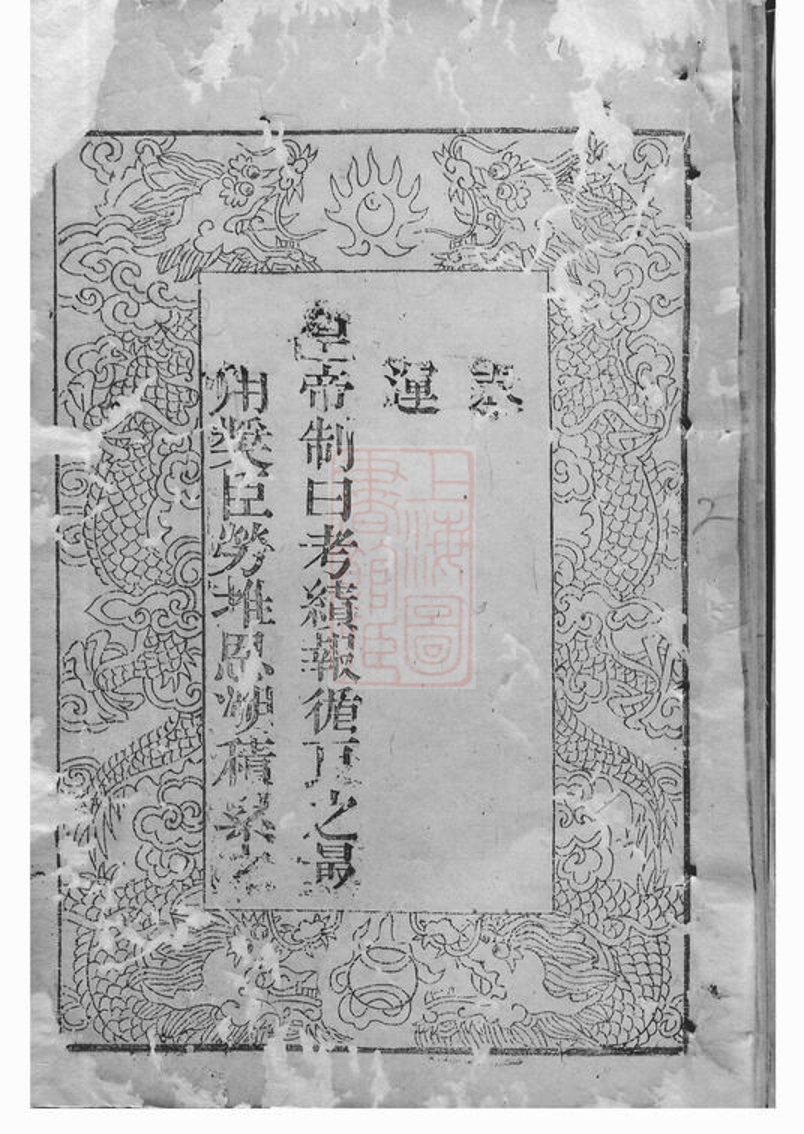 運
皇帝制曰考績報循良之最
用奬臣勞推恩溯積累之
上海圖
書館藏